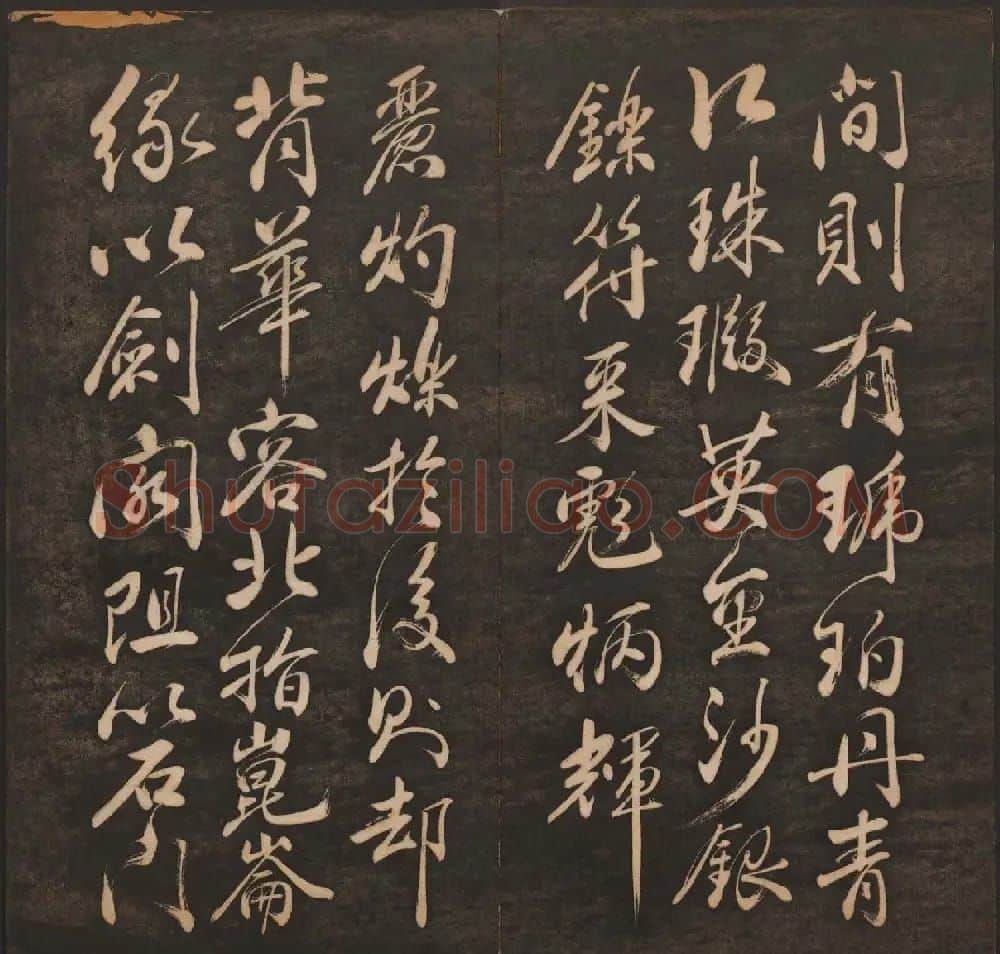 間則有琥珀丹青
江珠瑕英金沙銀
鑠符采彪炳輝
麗灼爍於後則却
背華容北指崑崙
緣以劍閣阻以石門
Shufaziliao.COM